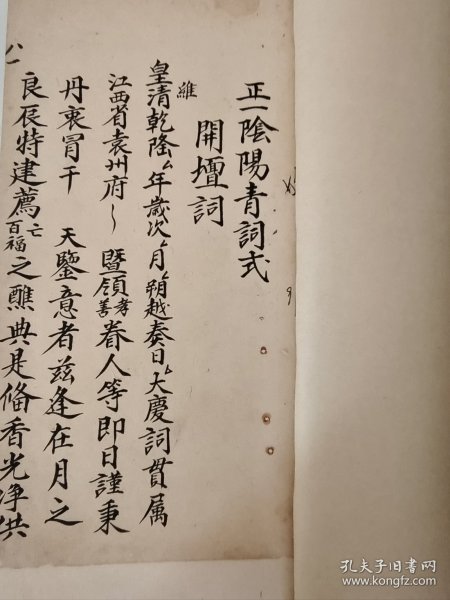 正一陰陽青詞式
開壇詞
維
皇清乾隆厶年歲次厶月厶朔越奏日厶大慶詞貫属
江西省袁州府〻暨領孝善眷人等即日謹秉
丹衷冒干 天鑒意者兹逢在月之
良辰特建薦亡百福之醮典是俻香光净供
孔夫子旧书网
www.kongfz.com